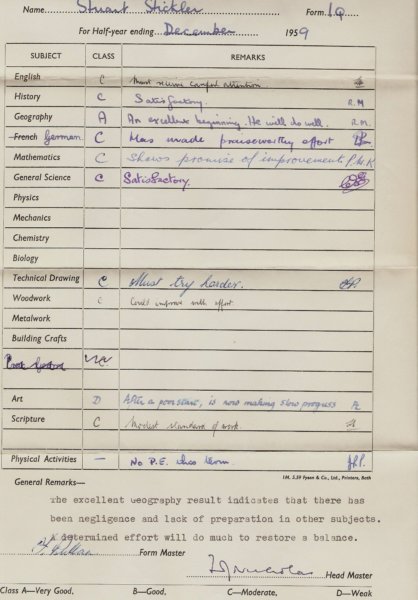 Name Stuart Stickler Form 1Q
For Half-year ending December 1959
SUBJECT CLASS REMARKS
English C Must receive careful attention.
History C Satisfactory. R.M
Geography A An excellent beginning. He will do well. R.M.
French German C Has made praiseworthy effort
Mathematics C Shows promise of improvement P.M.K
General Science C Satisfactory.
Physics
Mechanics
Chemistry
Biology
Technical Drawing C Must try harder.
Woodwork C Could improve with effort.
Metalwork
Building Crafts
Art D After a poor start, is now making slow progress
Scripture C Modest standard of work.
Physical Activities — No P.E. this term
I.M. 5.59 Fyson & Co., Ltd., Printers, Bath
General Remarks—
The excellent Geography result indicates that there has
been negligence and lack of preparation in other subjects.
A determined effort will do much to restore a balance.
Form Master
Head Master
Class A—Very Good. B—Good. C—Moderate. D—Weak